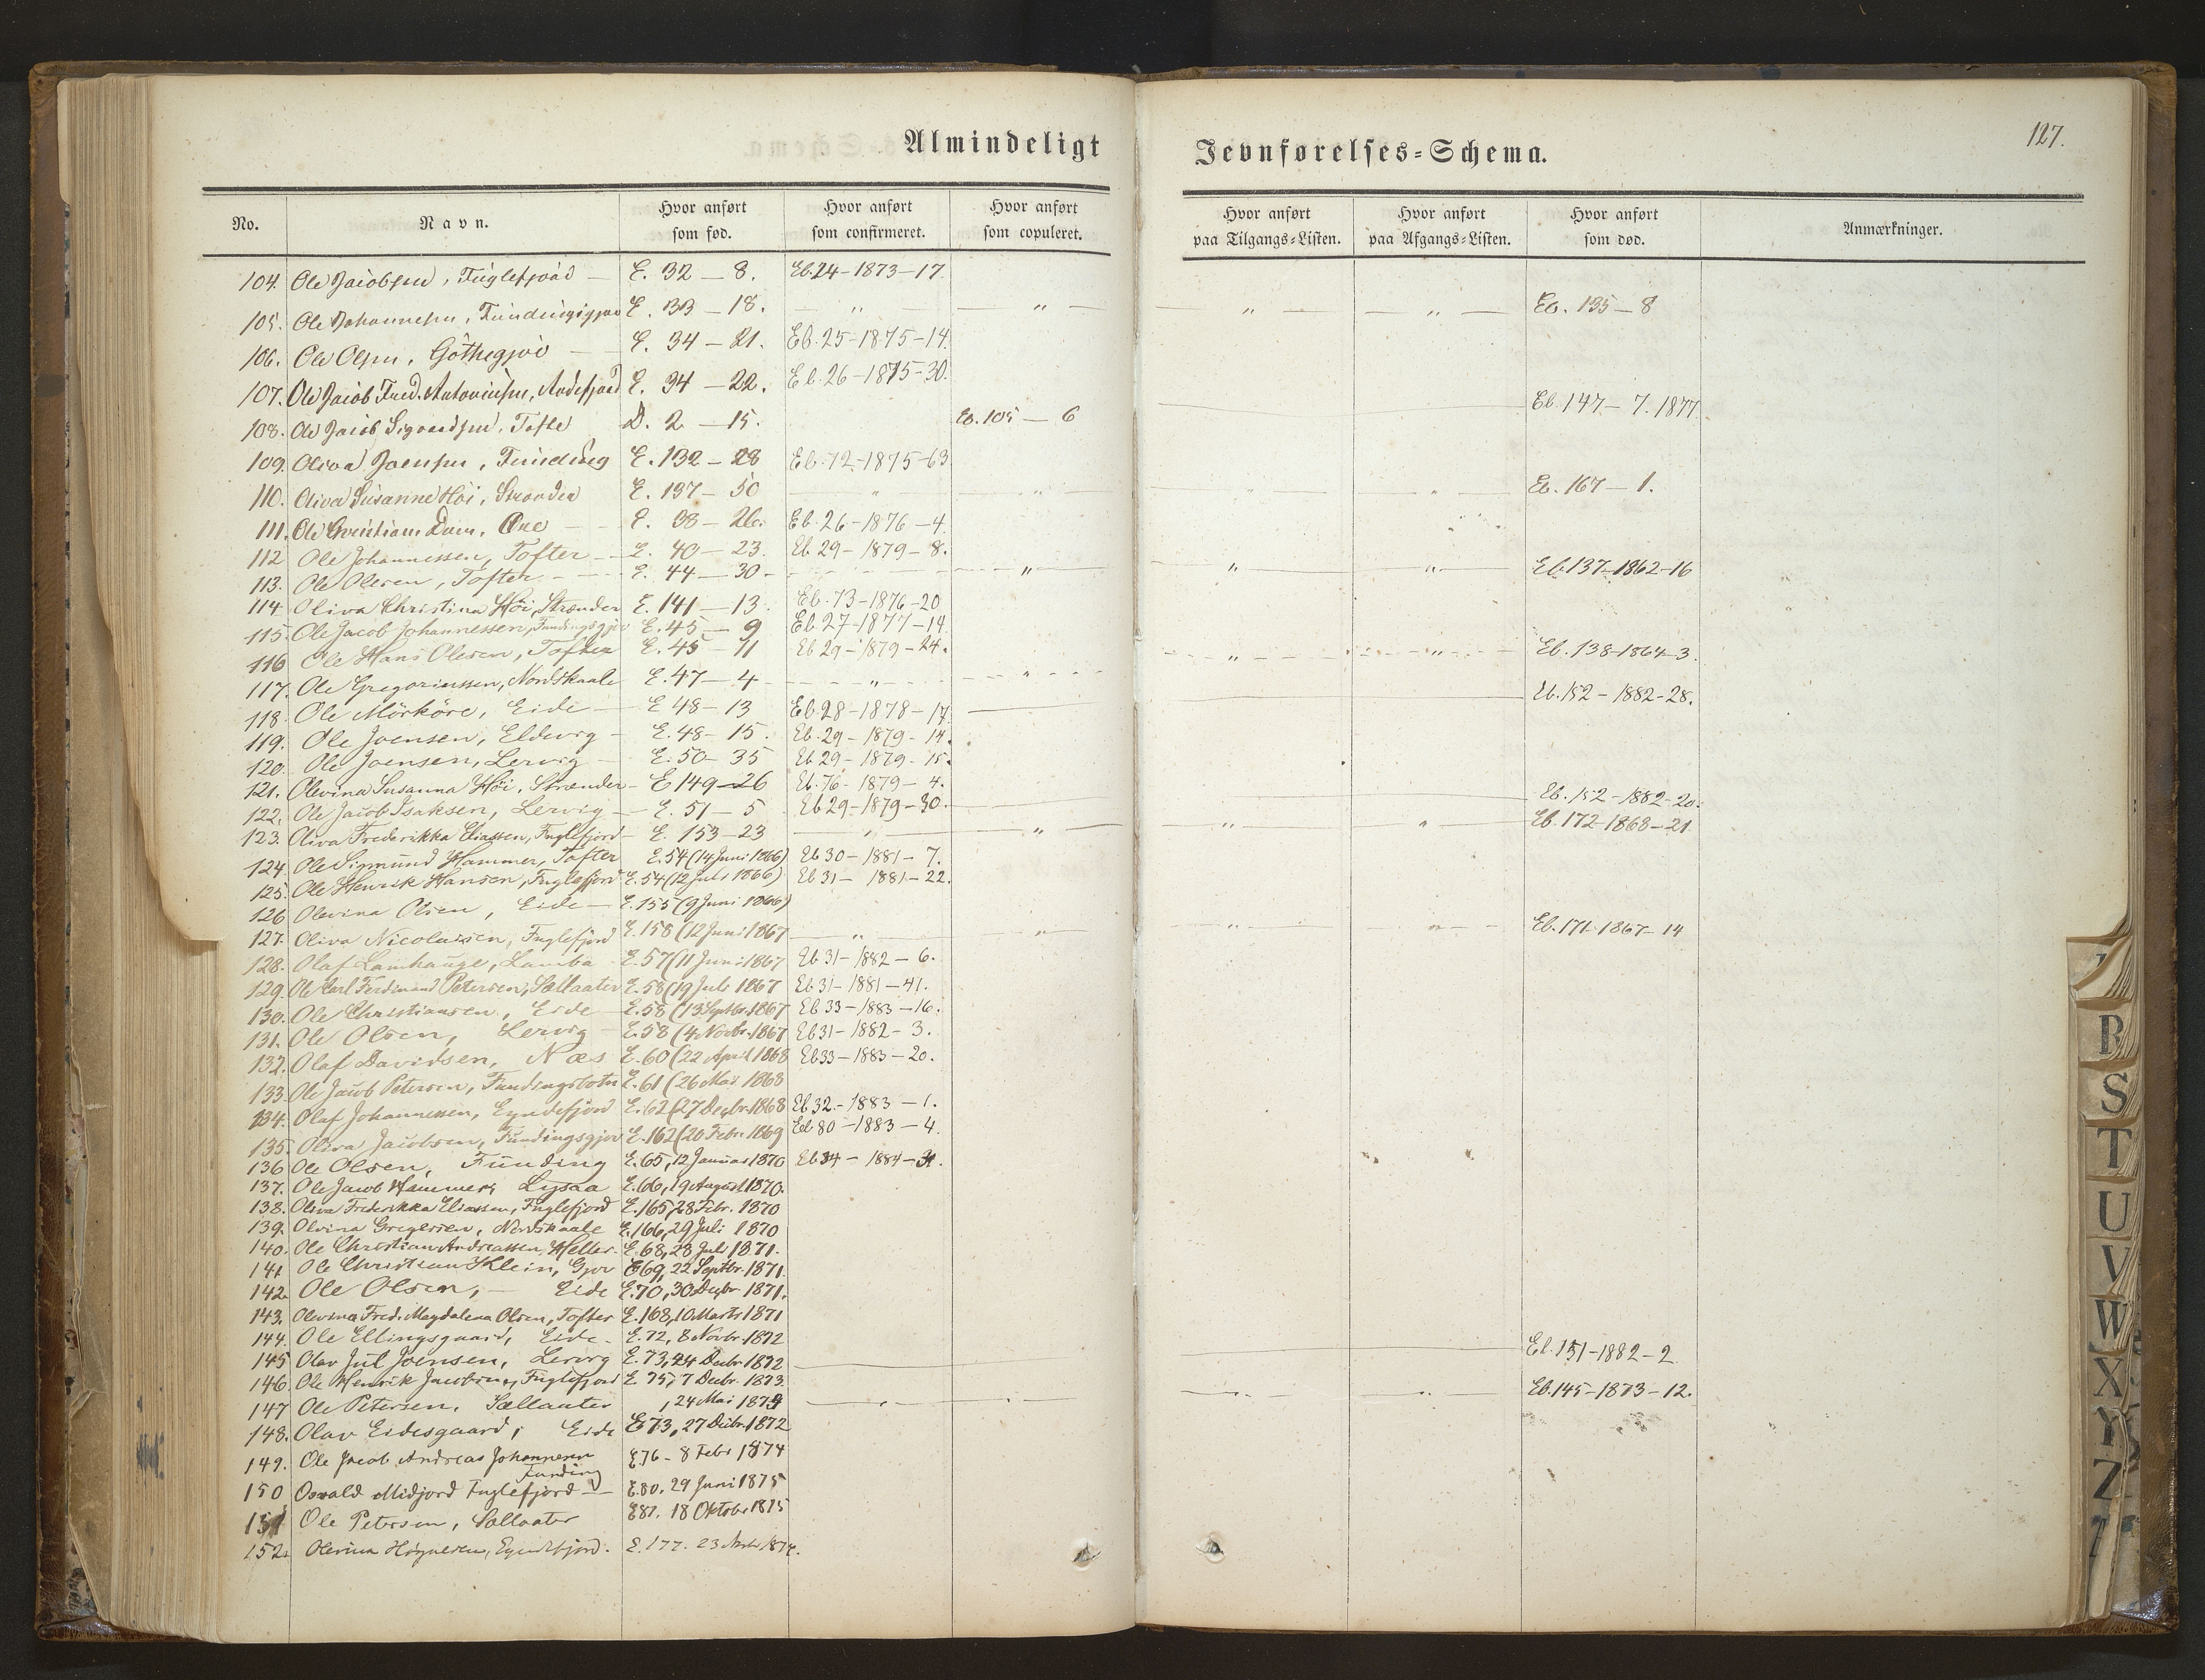 Almindeligt
Jevnførelses-Schema.
127.
No. Navn. Hvor anført som fød. Hvor anført som confirmeret. Hvor anført som copuleret. Hvor anført paa Tilgangs-Listen. Hvor anført paa Afgangs-Listen. Hvor anført som død. Anmærkninger.
104. Ole Jacobsen, Fuglefjord — E. 32 — 8. Eb. 24 - 1873 - 17
105. Ole Johannesen, E. 33 — 18. — " — — " — — " — — " — Eb. 135 — 8
106. Ole Olsen, Göthegjov — E. 34 — 21. Eb. 25 - 1875 - 14.
107. Ole Jacob Fred. Antoniussen, Andefjord E. 34 — 22. Eb. 26 - 1875 - 30. Eb. 147 — 7. 1877.
108. Ole Jacob Sigvardsen, Tofte D. 2 — 15. Eb. 105 — 6
109. Oliva Joensen, Funding E. 132 — 28 Eb. 72 - 1875 - 63.
110. Oliva Susanne Höi, Strænder E. 137 — 50 — " — — " — — " — — " — Eb. 167 — 1.
111. Ole Christian Dam, — E. 38 — 26. Eb. 26 - 1876 - 4.
112 Ole Johannessen, Tofter — E. 40 — 23. Eb 29 - 1879 - 8.
113. Ole Olesen, Tofter — E. 44 — 30 — — " — — " — — " — Eb 137 - 1862 - 16
114. Oliva Christina Höi, Strænder E. 141 — 13. Eb. 73 - 1876 - 20
115. Ole Jacob Johannessen, Fundingsgjov E. 45 — 9 Eb 27 - 1877 - 14.
116 Ole Hans Olesen, Tofter E. 45 — 11 Eb 29 - 1879 - 24. — " — — " — Eb. 138 - 1864 - 3.
117. Ole Gregoriussen, Nordskaale E. 47 — 4 — " — — " —
118. Ole Mörköre, Eide — E 48 - 13 Eb. 28 - 1878 - 17. — Eb. 152 - 1882 - 28.
119. Ole Joensen, Eldevig — E. 48 - 15. Eb. 29 - 1879 - 14.
120. Ole Joensen, Lervig — E. 50 - 35 Eb 29 - 1879 - 15.
121. Olevina Susanna Höi, Strænder — E 149 - 26 Eb. 76 - 1879 - 4.
122. Ole Jacob Isaksen, Lervig — E. 51 — 5 Eb 29 - 1879 - 30. — Eb. 152 - 1882 - 20.
123. Oliva Frederikka Eliassen, Fuglefjord — E. 153 - 23 — " — — " — — " — — " — Eb. 172 - 1868 - 21.
124. Ole Sigmund Hammer, Tofter E. 54 (14 Juni 1866) Eb 30 - 1881 - 7.
125. Ole Henrik Hansen, Fuglefjord E. 54 (12 Juli 1866) Eb 31 - 1881 - 22.
126 Olevina Olsen, Eide — E. 155 (9 Juni 1866)
127. Oliva Nicolaisen, Fuglefjord E. 158 (12 Juni 1867 — " — — " — — " — — " — Eb. 171 - 1867 - 14
128. Olaf Lamhauge, Lamba E. 57 (11 Juni 1867 Eb 31 - 1882 - 6.
129. Ole Carl Ferdinand Petersen, Sellaater E. 58 (19 Juli 1867 Eb 31 - 1881 - 41.
130. Ole Christiansen, Eide E. 58 (13 Septbr. 1867 Eb 33 - 1883 - 16.
131. Ole Olsen, Lervig — E. 58 (4 Novbr. 1867 Eb 31 - 1882 - 3.
132. Olaf Davidsen, Næs E. 60 (22 April 1868 Eb 33 - 1883 - 20.
133. Ole Jacob Petersen, Fundingsbotn E. 61 (26 Mai 1868
134. Olaf Johannesen, Eyndefjord E. 62 (27 Decbr. 1868 Eb 32. - 1883 - 1.
135. Oliva Jacobsen, Fundingsgjov E. 162 (20 Febr. 1869 Eb 80 - 1883 - 4.
136 Ole Olsen, Funding E. 65, 12 Januar 1870 Eb 34 - 1884 - 31.
137. Ole Jacob Hammer, Lysaa E. 66, 19 August 1870.
138. Oliva Frederikka Eliassen, Fuglefjord E. 165, 28 Febr. 1870
139. Olvina Gregersen, Nordskaale E. 166, 29 Juli 1870
140. Ole Christian Andreassen, Heller E. 68, 28 Juli 1871.
141 Ole Christian Klein, Gjov E 69, 22 Septbr. 1871.
142. Ole Olsen, — Eide E. 70, 30 Decbr. 1871.
143. Olevina Fred. Magdalena Olsen, Tofter E. 168, 10 Marts 1871
144. Ole Ellingsgaard, Eide — E. 72, 8 Novbr. 1872
145 Olav Jul Joensen, Lervig E. 73, 24 Decbr. 1872 — Eb. 151 - 1882 - 2.
146. Ole Henrik Jacobsen, Fuglefjord E. 75, 7 Decbr. 1873.
147 Ole Petersen, Sellaater , 24 Mai 1873 — " — — " — — " — — " — Eb. 145 - 1873 - 12.
148. Olav Eidesgaard, Eide E 73, 27 Decbr. 1872
149. Ole Jacob Andreas Johannesen Funding E 76 - 8 Febr 1874
150 Osvald Midjord Fuglefjord — E. 80. 29 Juni 1875
151 Ole Petersen, Sellaater E 81. 18 Oktober 1875
152. Olevina Högnesen, Eyndefjord. E. 177. 23
R
S
T
U
V
W
X
Y
Z